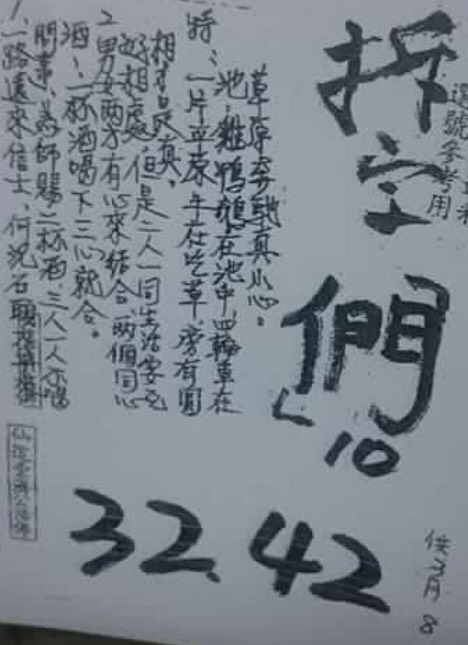 拆字
們
10
32.42
選號參考用
1、一路遠來信士,何況
問事、為師賜二杯酒,三人一人
酒,一杯酒喝下三心就合。
2男女兩方有心來結合,兩個同心
好相處,但是二人一同生活要互
相才是真、
特:一片平原牛在吃草,旁有圓
池,雞鴨鵝在池中,四輪車在
草原奔馳真小心。